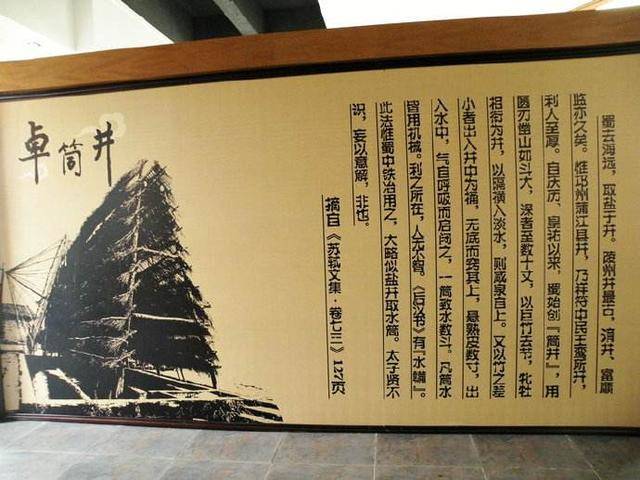 卓筒井
蜀去海远，取盐于井。陵州井最古，淯井、富顺
监亦久矣。惟邛州蒲江县井，乃祥符中民王鸾所开，
利人至厚。自庆历、皇祐以来，蜀始创『筒井』，用
圆刃凿山如斗大，深者至数十丈，以巨竹去节，牝牡
相衔为井，以隔横入淡水，则咸泉自上。又以竹之差
小者出入井中为桶，无底而窍其上，悬熟皮数寸，出
入水中，气自呼吸而启闭之，一筒致水数斗。凡筒水
皆用机械。利之所在，人无不智。《后汉书》有『水鞴』。
此法惟蜀中铁冶用之，大略似盐井取水筒。太子贤不
识，妄以意解，非也。
摘自《苏轼文集·卷七三》127页